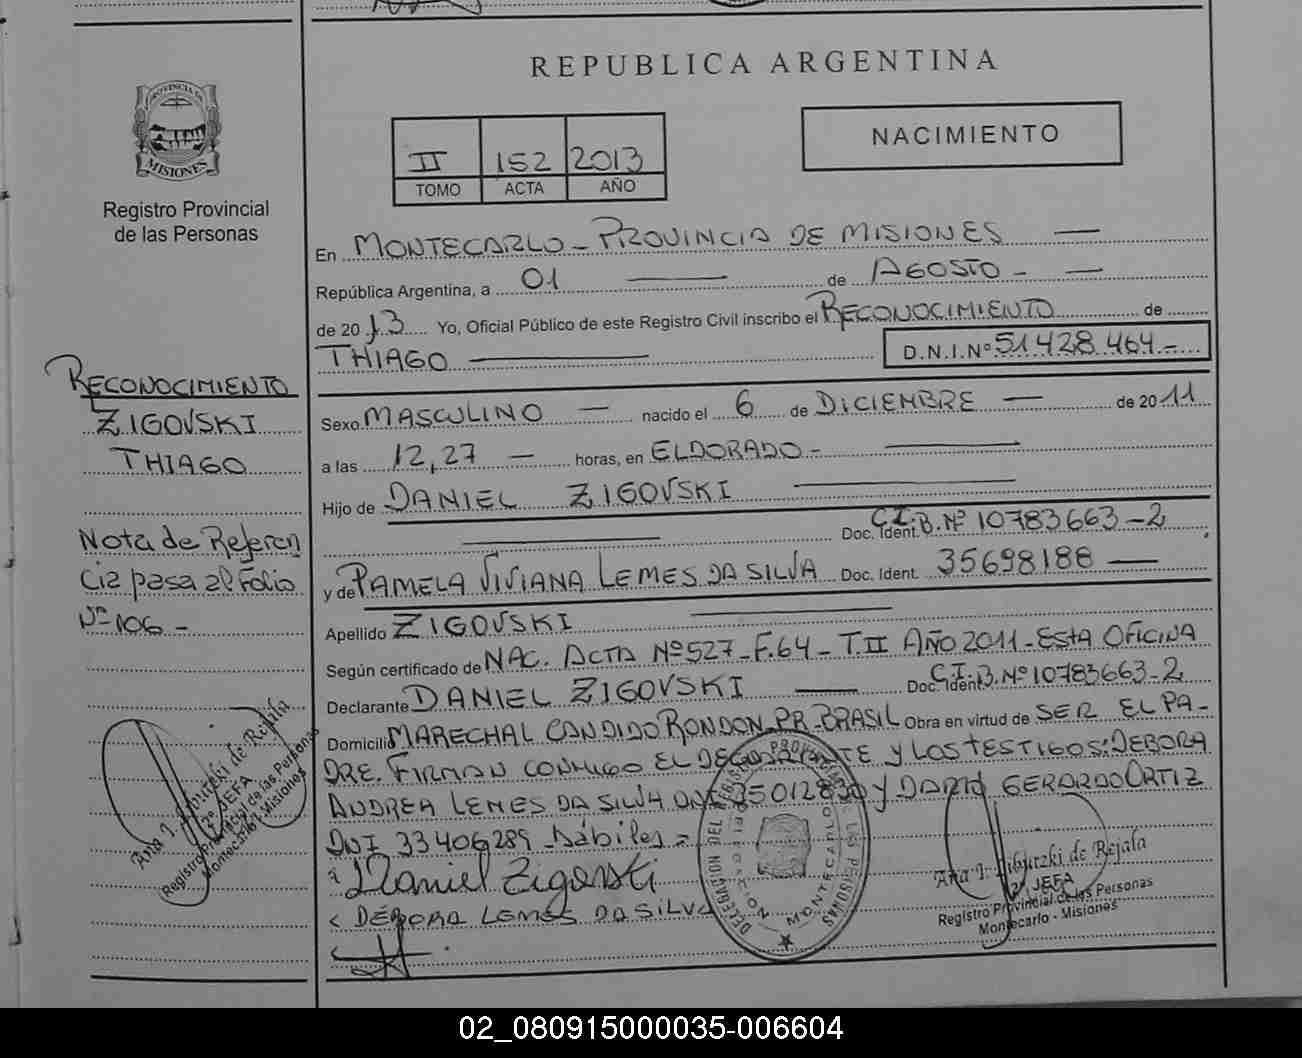 REPUBLICA ARGENTINA
PROVINCIA DE
MISIONES
Registro Provincial
de las Personas
II 152 2013
TOMO ACTA AÑO
NACIMIENTO
En MONTECARLO - PROVINCIA DE MISIONES
República Argentina, a 01 de AGOSTO -
de 2013 Yo, Oficial Público de este Registro Civil inscribo el RECONOCIMIENTO de
THIAGO D.N.I.Nº 51428.464 -
Sexo MASCULINO nacido el 6 de DICIEMBRE de 2011
a las 12,27 horas, en ELDORADO -
Hijo de DANIEL ZIGOVSKI
Doc. Ident. C.I.B. Nº 10783663-2
y de PAMELA VIVIANA LEMES DA SILVA Doc. Ident. 35698188
Apellido ZIGOVSKI
Según certificado de NAC. ACTA Nº 527 - F.64 - T.II AÑO 2011 - ESTA OFICINA
Declarante DANIEL ZIGOVSKI Doc. Ident. C.I.B. Nº 10783663-2
Domicilio MARECHAL CANDIDO RONDON - PR - BRASIL Obra en virtud de SER EL PA-
DRE. FIRMAN CONMIGO EL DECLARANTE Y LOS TESTIGOS: DEBORA
ANDREA LEMES DA SILVA DNI Y DARIO GERARDO ORTIZ
DNI 33406289 - Dábiles =
Daniel Zigovski
DÉBORA LEMES DA SILVA
RECONOCIMIENTO
ZIGOVSKI
THIAGO
Nota de Referen
cia pasa al Folio
Nº 106 -
Rejala
2º JEFA
Registro Provincial de las Personas
Montecarlo - Misiones
DELEGACION DEL REGISTRO PROVINCIAL DE LAS PERSONAS
MONTECARLO
Ana I. de Rejala
2º JEFA
Registro Provincial de las Personas
Montecarlo - Misiones
02_080915000035-006604